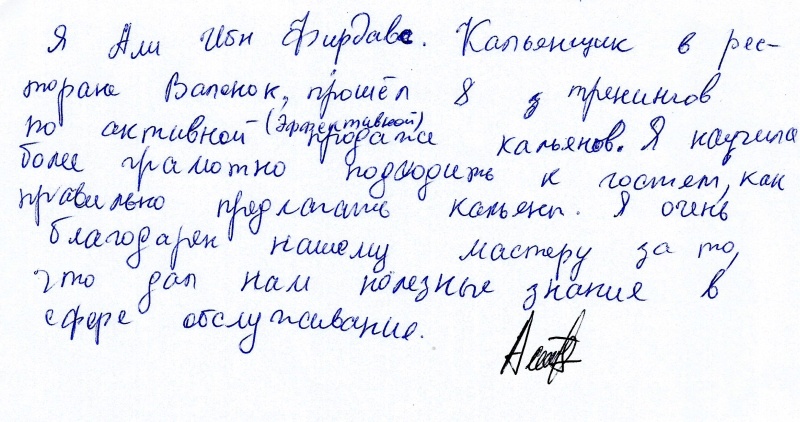 Я Али Ибн Фирдавс. Кальянщик в рес-
торане Валенок, прошёл 8 тренингов
по активной (эффективной) продаже кальянов. Я научился
более грамотно подходить к гостем, как
правильно предлагать кальян. Я очень
благодарен нашему мастеру за то,
что дал нам полезные знание в
сфере обслуживание.